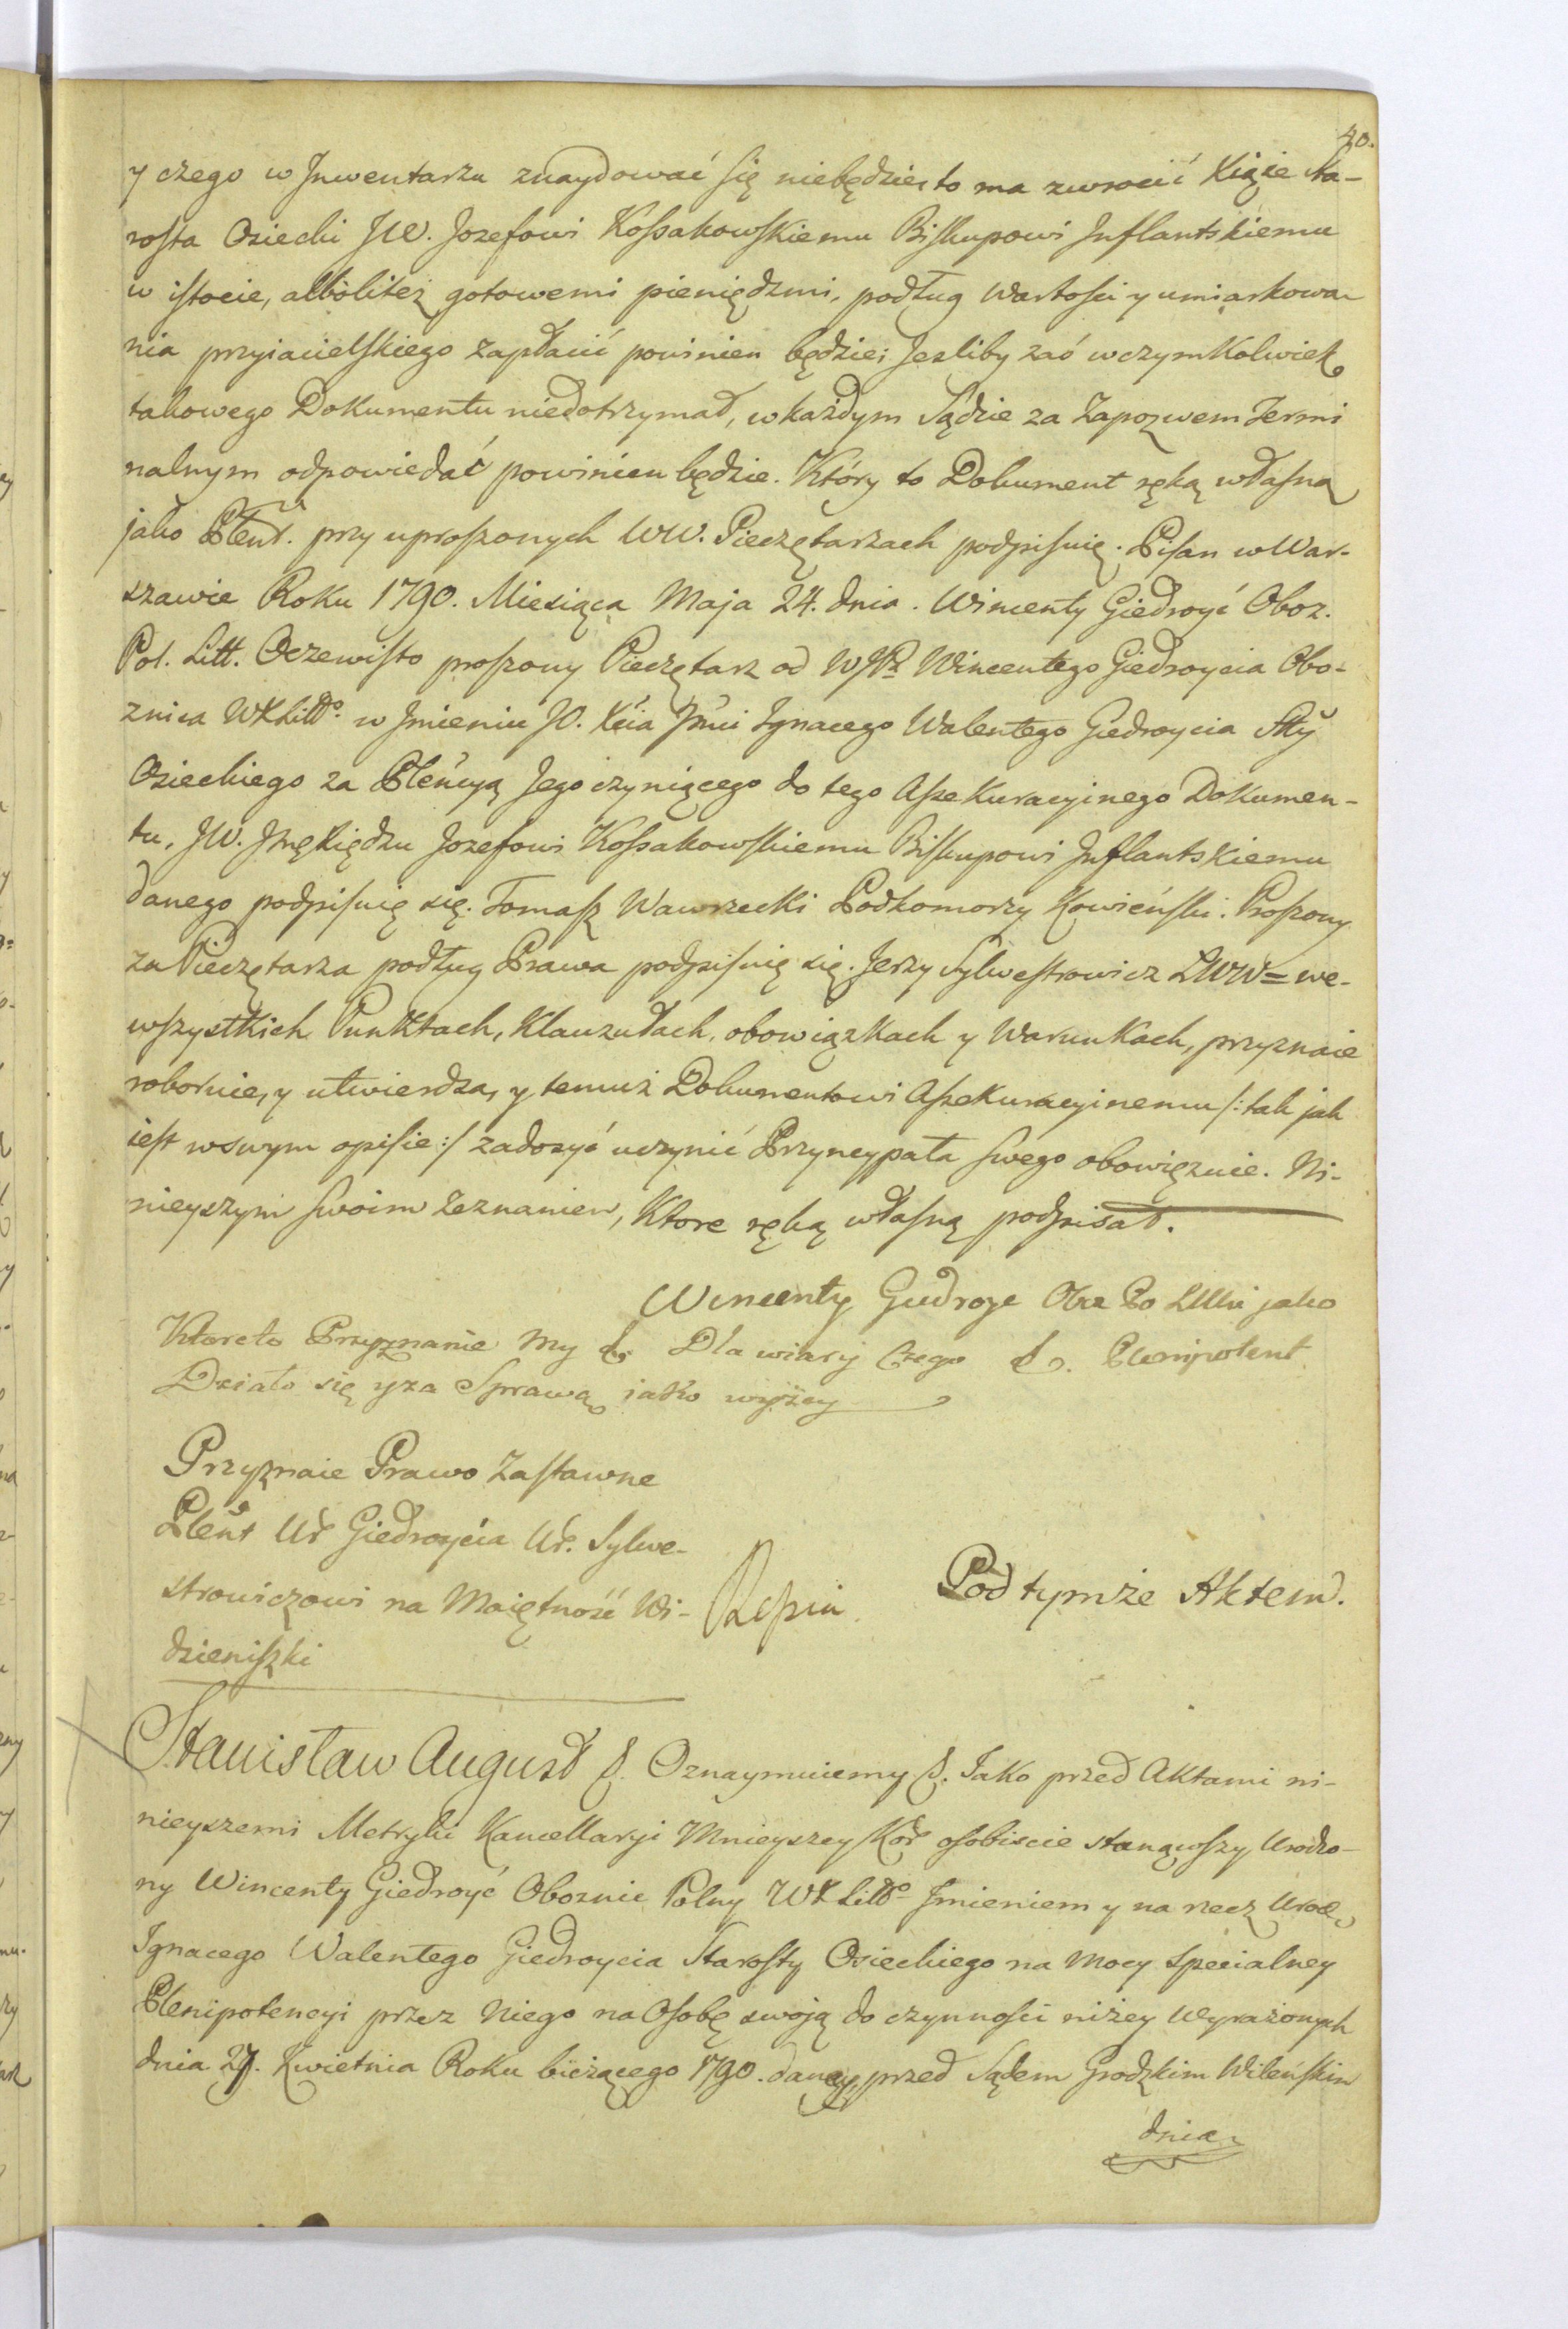 40.
y czego w Inwentarzu znaydować się niebędzie, to ma zwrocić Xiąże Sta-
rosta Osiecki JW. Jozefowi Kossakowskiemu Biskupowi Inflantskiemu
w istocie, albolitez gotowemi pieniędzmi, podług Wartości y umiarkowa-
nia przyiacielskiego zapłacić powinien będzie; Jezliby zaś w czymKolwiek
takowego Dokumentu niedotrzymał, w każdym Sądzie za Zapozwem Termi
nalnym odpowiedać powinien będzie. Który to Dokument ręką własną
jako Plent. przy uproszonych WW. Pieczętarzach podpisuię. Pisan w War-
szawie Roku 1790. Miesiąca Maja 24. dnia. Wincenty Giedroyć Oboz.
Pol. Litt. Oczewisto proszony Pieczętarz od WJPa Wincentego Giedroycia Obo-
znica WXLittº. w Jmieniu JO. Xcia Jmci Ignacego Walentego Giedroycia Stty
Osieckiego za Plencyą Jego czyniącego do tego Assekuracyinego Dokumen-
tu, JW. Jmę Xiędzu Jozefowi Kossakowskiemu Biskupowi Inflantskiemu
danego podpisuię się. Tomasz Wawrzecki Podkomorzy Kowieński. Proszony
za Pieczętarza podług Prawa podpisuię się. Jerzy Sylwestrowicz LWW= we-
wszystkich Punktach, Klauzułach, obowiązkach y Warunkach, przyznaie
robornie, y utwierdza, y temuż Dokumentowi Assekuracyinemu /: tak jak
iest w swym opisie :/ zadosyć uczynić Pryncypała swego obowięzuie. Ni-
nieyszym swoim zeznaniem, Ktore ręką własną podpisał.
Wincenty Giedroyc Obz Po jako
Ktoreto Przyznanie My &. Dla wiary Czego &. Plenipotent
Działo się y za Sprawą jako wyżey
Przyznaie Prawo Zastawne
Plent Ur Giedroycia Ur. Sylwe-
strowiczowi na Maiętność Wi-
dzieniszki
Pod tymże Aktem.
Stanisław August &. Oznaymuiemy &. Jako przed Aktami ni-
nieyszemi Metryki Kancellaryi Mnieyszey Kor osobiscie stanąwszy Urodzo-
ny Wincenty Giedroyć Oboznic Polny WXLittº Jmieniem y na rzecz Urodz
Ignacego Walentego Giedroycia Starosty Osieckiego na Mocy specialney
Plenipotencyi przez Niego na Osobę swoją do czynności niżey Wyrażonych
dnia 27. Kwietnia Roku bieżącego 1790. daney, przed Sądem Grodzkim Wileńskim
dnia